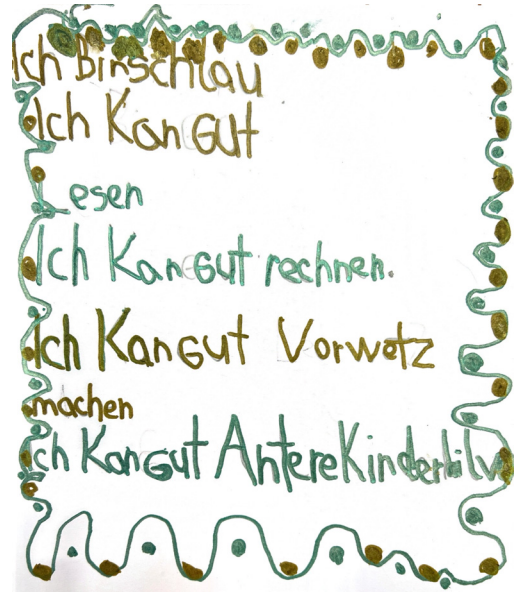 Ich Binschlau
Ich Kan Gut
Lesen
Ich Kan Gut rechnen.
Ich Kan Gut Vorwetz
machen
Ich Kan Gut Antere Kinder